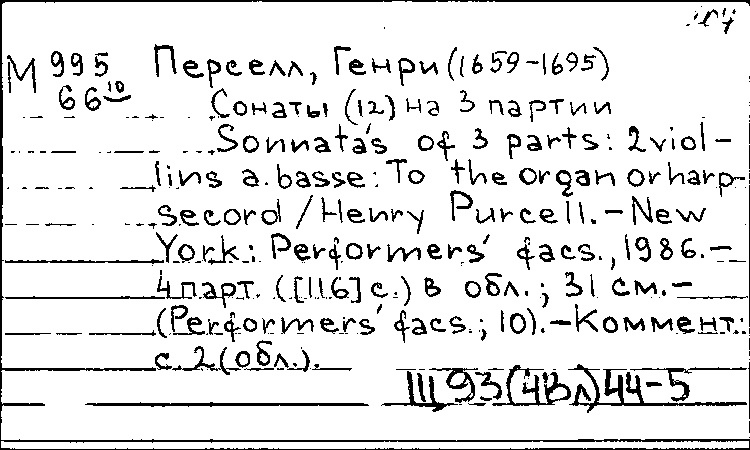 М 995 Перселл, Генри (1659-1695)
66 10 Сонаты (12) на 3 партии
Sonnata's of 3 parts: 2 viol-
lins a. basse: To the organ or harp-
secord / Henry Purcell. - New
York: Performers' facs., 1986. -
4 парт. ([116] с.) в обл.; 31 см. -
(Performers' facs.; 10). - Коммент.:
с. 2 (обл.).
Щ93(4Вл)44-5